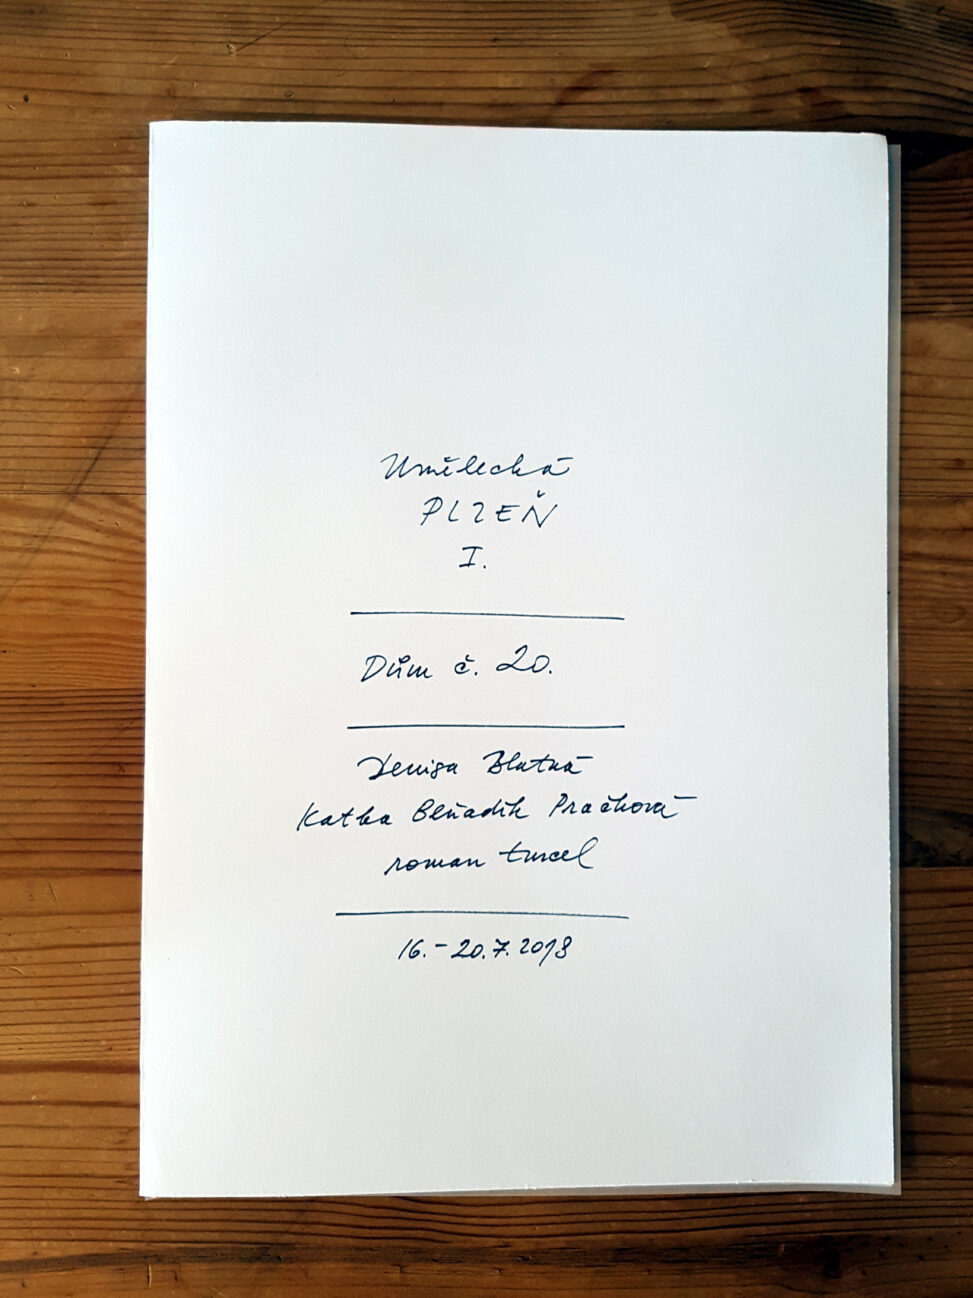 Umělecká
PLZEŇ
I.
Dům č. 20.
Denisa Blatná
Katka Beňadik Pračková
roman turcel
16.–20.7.2018